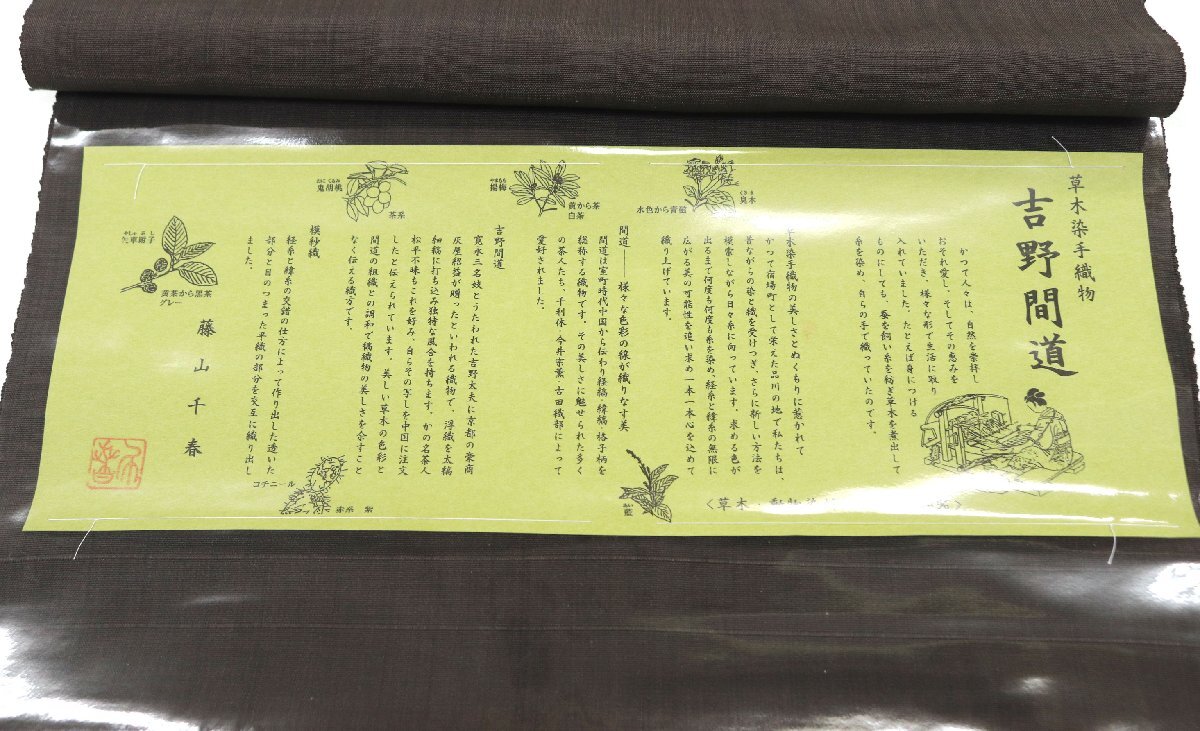 草木染手織物
吉野間道
かつて人々は、自然を崇拝し
おそれ愛し、そしてその恵みを
いただき、様々な形で生活に取り
入れていました。たとえば身につける
ものにしても、蚕を飼い糸を紡ぎ草木を煮出して
糸を染め、自らの手で織っていたのです。
草木染手織物の美しさとぬくもりに惹かれて
かつて宿場町として栄えた品川の地で私たちは、
昔ながらの染と織を受けつぎ、さらに新しい方法を
模索しながら日々糸に向っています。求める色が
出るまで何度も何度も糸を染め、経糸と緯糸の無限に
広がる美の可能性を追い求め一本一本心を込めて
織り上げています。
間道――様々な色彩の線が織りなす美
間道は室町時代中国から伝わり経縞・緯縞・格子柄を
総称する織物です。その美しさに魅せられた多く
の茶人たち、千利休・今井宗薫・古田織部によって
愛好されました。
吉野間道
寛永三名妓とうたわれた吉野太夫に京都の豪商
灰屋紹益が贈ったといわれる織物で、浮織を太縞
細縞に打ち込み独特な風合を持ちます。かの名茶人
松平不昧もこれを好み、自らその写しを中国に注文
したと伝えられています。美しい草木の色彩と
間道の組織との調和で縞織物の美しさを余すこと
なく伝える織方です。
模紗織
経糸と緯糸の交錯の仕方によって作り出した透いた
部分と目のつまった平織の部分を交互に織り出し
ました。
藤山千春
くさき
臭木
水色から青藍
やまもも
楊梅
黄から茶
白茶
おにぐるみ
鬼胡桃
茶系
やしゃぶし
矢車附子
黄茶から黒茶
グレー
コチニール
赤系 紫
あい
藍
〈草木